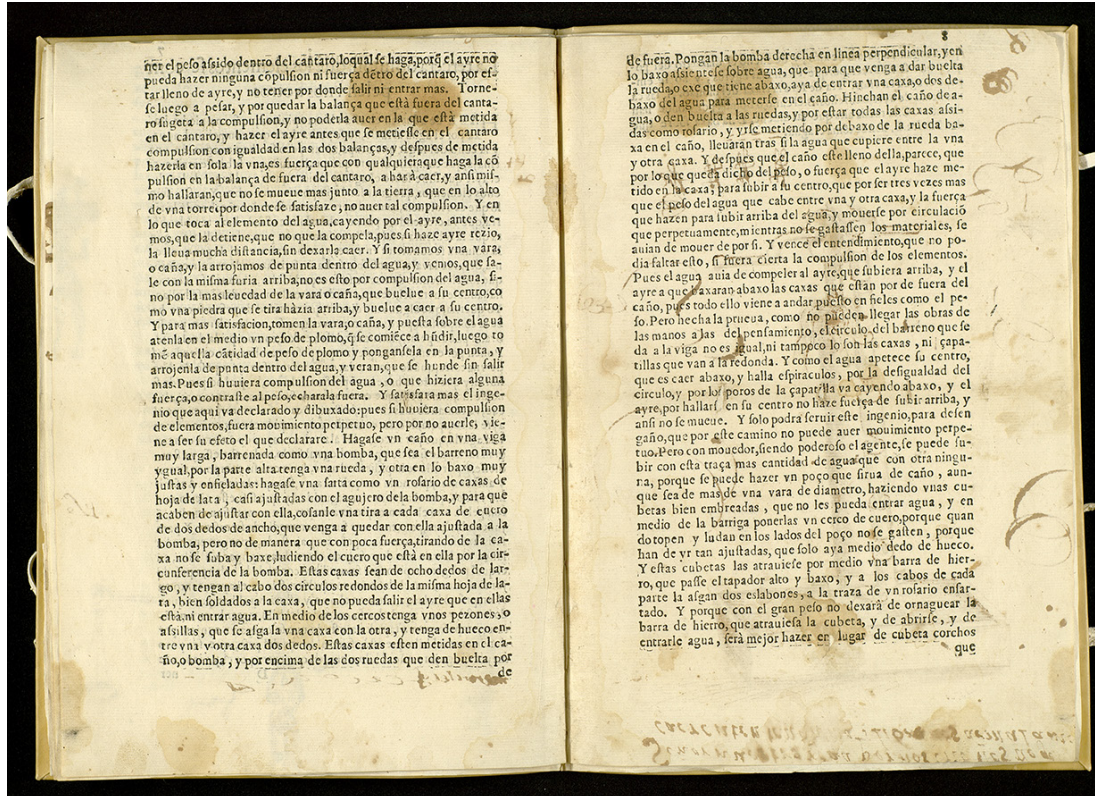 ner el peso assido dentro del cantaro, loqual se haga, porq̃ el ayre no
pueda hazer ninguna cõpulsion ni fuerça dẽtro del cantaro, por es-
tar lleno de ayre, y no tener por donde salir ni entrar mas. Torne-
se luego a pesar, y por quedar la balança que està fuera del canta-
ro sugeta a la compulsion, y no poderla auer en la que està metida
en el cantaro, y hazer el ayre antes que se metiesse en el cantaro
compulsion con igualdad en las dos balanças, y despues de metida
hazerla en sola la vna, es fuerça que con qualquiera que haga la cõ
pulsion en la balança de fuera del cantaro, a harà caer, y ansi mis-
mo hallaran, que no se mueue mas junto a la tierra, que en lo alto
de vna torre: por donde se satisfaze, no auer tal compulsion. Y en
lo que toca al elemento del agua, cayendo por el ayre, antes ve-
mos, que la detiene, que no que la compela, pues si haze ayre rezio,
la lleua mucha distancia, sin dexarla caer. Y si tomamos vna vara,
o caña, y la arrojamos de punta dentro del agua, y vemos, que sa-
le con la misma furia arriba, no es esto por compulsion del agua, si-
no por la mas leuedad de la vara o caña, que buelue a su centro, co
mo vna piedra que se tira hàzia arriba, y buelue a caer a su centro.
Y para mas satisfacion, tomen la vara, o caña, y puesta sobre el agua
atenla en el medio vn peso de plomo, q̃ se comiẽce a hũdir, luego to
mẽ aquella cãtidad de peso de plomo y pongansela en la punta, y
arrojenla de punta dentro del agua, y veran, que se hunde sin salir
mas. Pues si huuiera compulsion del agua, o que hiziera alguna
fuerça, o contraste al peso, echarala fuera. Y satisfara mas el inge-
nio que aqui va declarado y dibuxado: pues si huuiera compulsion
de elementos, fuera mouimiento perpetuo, pero por no auerle, vie-
ne a ser su efeto el que declarare. Hagase vn caño en vna viga
muy larga, barrenada como vna bomba, que sea el barreno muy
ygual, por la parte alta tenga vna rueda, y otra en lo baxo muy
justas y enfieladas: hagase vna sarta como vn rosario de caxas de
hoja de lata, casi ajustadas con el agujero de la bomba, y para que
acaben de ajustar con ella, cosanle vna tira a cada caxa de cuero
de dos dedos de ancho, que venga a quedar con ella ajustada a la
bomba, pero no de manera que con poca fuerça, tirando de la ca-
xa no se suba y baxe, ludiendo el cuero que està en ella por la cir-
cunferencia de la bomba. Estas caxas sean de ocho dedos de lar-
go, y tengan al cabo dos circulos redondos de la misma hoja de la-
ta, bien soldados a la caxa, que no pueda salir el ayre que en ellas
està, ni entrar agua. En medio de los cercos tenga vnos pezones, o
assillas, que se asga la vna caxa con la otra, y tenga de hueco en-
tre vna y otra caxa dos dedos. Estas caxas esten metidas en el ca-
ño, o bomba, y por encima de las dos ruedas que den buelta por
de
8
de fuera. Pongan la bomba derecha en linea perpendicular, y en
lo baxo assientese sobre agua, que para que venga a dar buelta
la rueda, o exe que tiene abaxo, aya de entrar vna caxa, o dos de-
baxo del agua para meterse en el caño. Hinchan el caño de a-
gua, o den buelta a las ruedas, y por estar todas las caxas assi-
das como rosario, y yrse metiendo por debaxo de la rueda ba-
xa en el caño, lleuaràn tras si la agua que cupiere entre la vna
y otra caxa. Y despues que el caño este lleno della, parece, que
por lo que queda dicho del peso, o fuerça que el ayre haze me-
tido en la caxa, para subir a su centro, que por ser tres vezes mas
que el peso del agua que cabe entre vna y otra caxa, y la fuerça
que hazen para subir arriba del agua, y mouerse por circulaciõ
que perpetuamente, mientras no se gastassen los materiales, se
auian de mouer de por si. Y vence el entendimiento, que no po-
dia faltar esto, si fuera cierta la compulsion de los elementos.
Pues el agua auia de compeler al ayre, que subiera arriba, y el
ayre a que baxaran abaxo las caxas que estàn por de fuera del
caño, pues todo ello viene a andar puesto en fieles como el pe-
so. Pero hecha la prueua, como no pueden llegar las obras de
las manos a las del pensamiento, el circulo del barreno que se
da a la viga no es igual, ni tampoco lo son las caxas, ni çapa-
tillas que van a la redonda. Y como el agua apetece su centro,
que es caer abaxo, y halla espiraculos, por la desigualdad del
circulo, y por los poros de la çapatilla va cayendo abaxo, y el
ayre, por hallarse en su centro no haze fuerça de subir arriba, y
ansi no se mueue. Y solo podra seruir este ingenio, para desen
gaño, que por este camino no puede auer mouimiento perpe-
tuo. Pero con mouedor, siendo poderoso el agente, se puede su-
bir con esta traça mas cantidad de agua que con otra ningu-
na, porque se puede hazer vn poço que sirua de caño, aun-
que sea de mas de vna vara de diametro, haziendo vnas cu-
betas bien embreadas, que no les pueda entrar agua, y en
medio de la barriga ponerlas vn cerco de cuero, porque quan
do topen y ludan en los lados del poço no se gasten, porque
han de yr tan ajustadas, que solo aya medio dedo de hueco.
Y estas cubetas las atrauiese por medio vna barra de hier-
ro, que passe el tapador alto y baxo, y a los cabos de cada
parte la asgan dos eslabones, a la traza de vn rosario ensar-
tado. Y porque con el gran peso no dexarà de ornaguear la
barra de hierro, que atrauiesa la cubeta, y de abrirse, y de
entrarle agua, serà mejor hazer en lugar de cubeta corchos
que